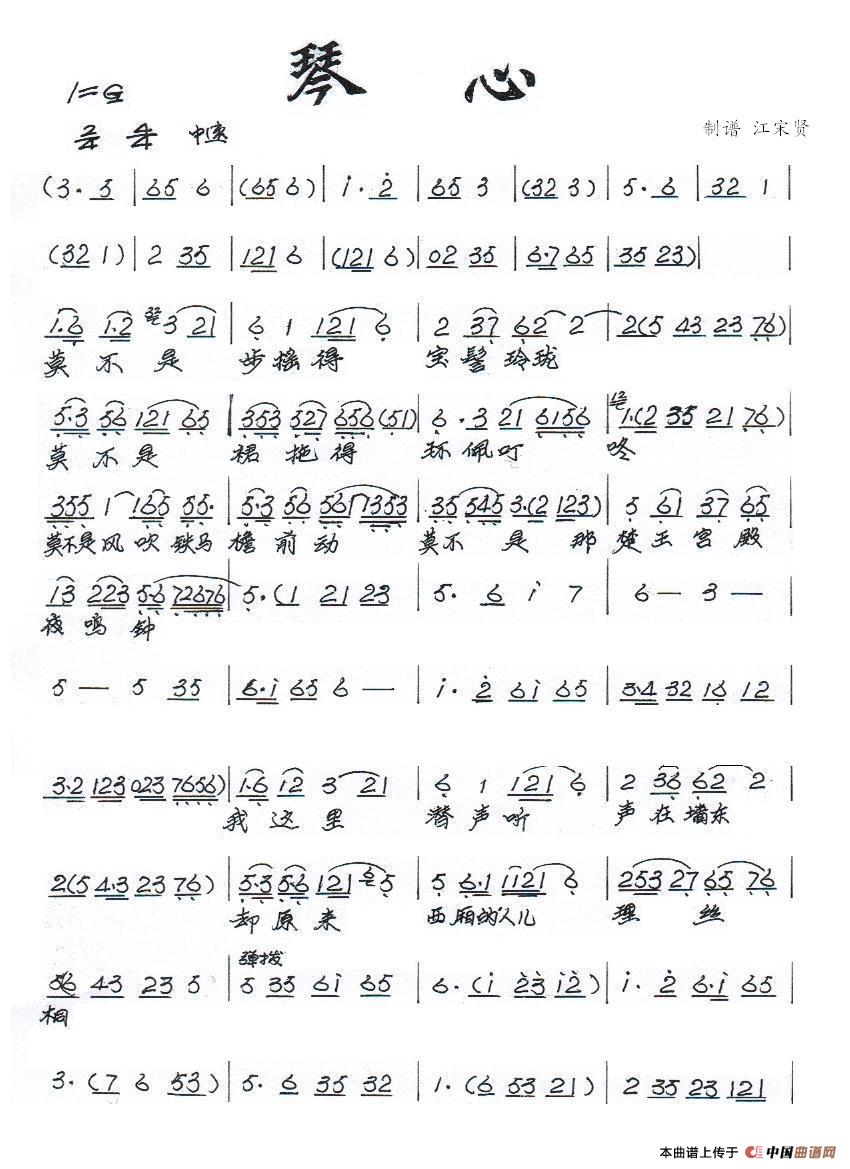 琴 心
1=G
2/4 4/4 中速
制谱 江宋贤
(3. 5 | 65 6 | (65 6) | i. 2 | 65 3 | (32 3) | 5. 6 | 32 1 |
(32 1) | 2 35 | 121 6 | (121 6) | 02 35 | 6.765 | 35 23) |
1.6 1.2 3 21 | 6 1 121 6 | 2 37 62 2 | 2(5 43 23 76) |
莫 不 是 步摇得 宝髻玲珑
5.3 56 121 65 | 353 527 656 (51) | 6. 3 21 6156 | 1.(2 35 21 76) |
莫 不 是 裙拖得 环佩叮 咚
355 1 165 55. | 5.3 56 561 7353 | 35 545 3.(2 123) | 5 61 37 65 |
莫不是风吹铁马 檐前动 莫不是那 楚王宫殿
13 223 5.6 72676 | 5.(1 21 23 | 5. 6 i 7 | 6 — 3 — |
夜鸣钟
5 — 5 35 | 6.i 65 6 — | i. 2 6i 65 | 3.4 32 16 12 |
3.2 123 023 7656) | 1.6 12 3 21 | 6 1 121 6 | 2 36 62 2 |
我 这 里 潜声听 声在墙东
2(5 4.3 23 76) | 5.3 5.6 121 5 | 5 6.1 1121 6 | 253 27 65 76 |
却原来 西厢的人儿 理 丝
56 43 23 5 | 5 35 6i 65 | 6.(i 23 i2) | i. 2 6.i 65 |
弹拨
桐
3.(7 6 53) | 5. 6 35 32 | 1.(6 53 21) | 2 35 23 121 |
本曲谱上传于 中国曲谱网